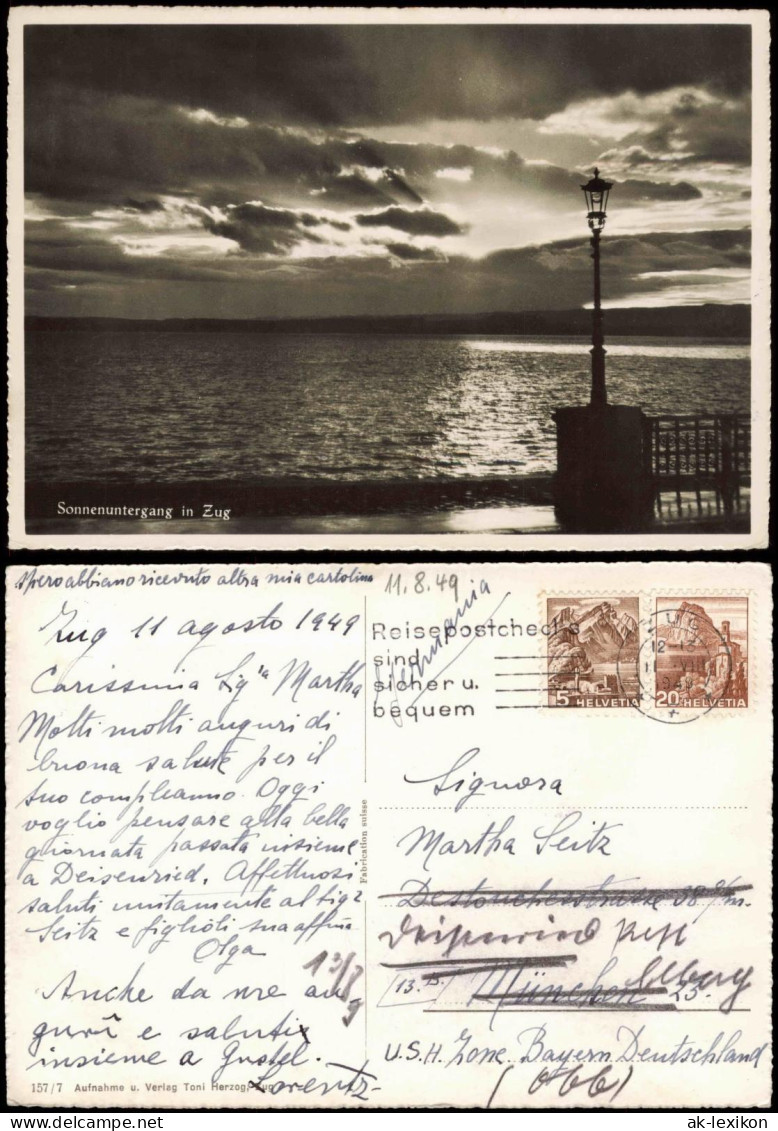 Sonnenuntergang in Zug
spero abbiano ricevuto altra mia cartolina
11.8.49
Zug 11 agosto 1949
Carissima Sig.ra Martha
Molti molti auguri di
buona salute per il
suo compleanno. Oggi
voglio pensare alla bella
giornata passata insieme
a Deisenried. Affettuosi
saluti unitamente al Sigr
Seitz e figlioli sua affma
Olga
13/8
9
Anche da me au-
guri e saluti
insieme a Gustel.
Lorentz-
157/7 Aufnahme u. Verlag Toni Herzog, Zug
Fabrication suisse
Germania
Reisepostchecks
sind
sicher u.
bequem
ZUG
5 HELVETIA
20 HELVETIA
Signora
Martha Seitz
Destoucherstrasse 38
Deisenried Post
13.B. München 23. Ellberg
U.S.H. Zone. Bayern. Deutschland
ak-lexikon
ak-lexikon.com